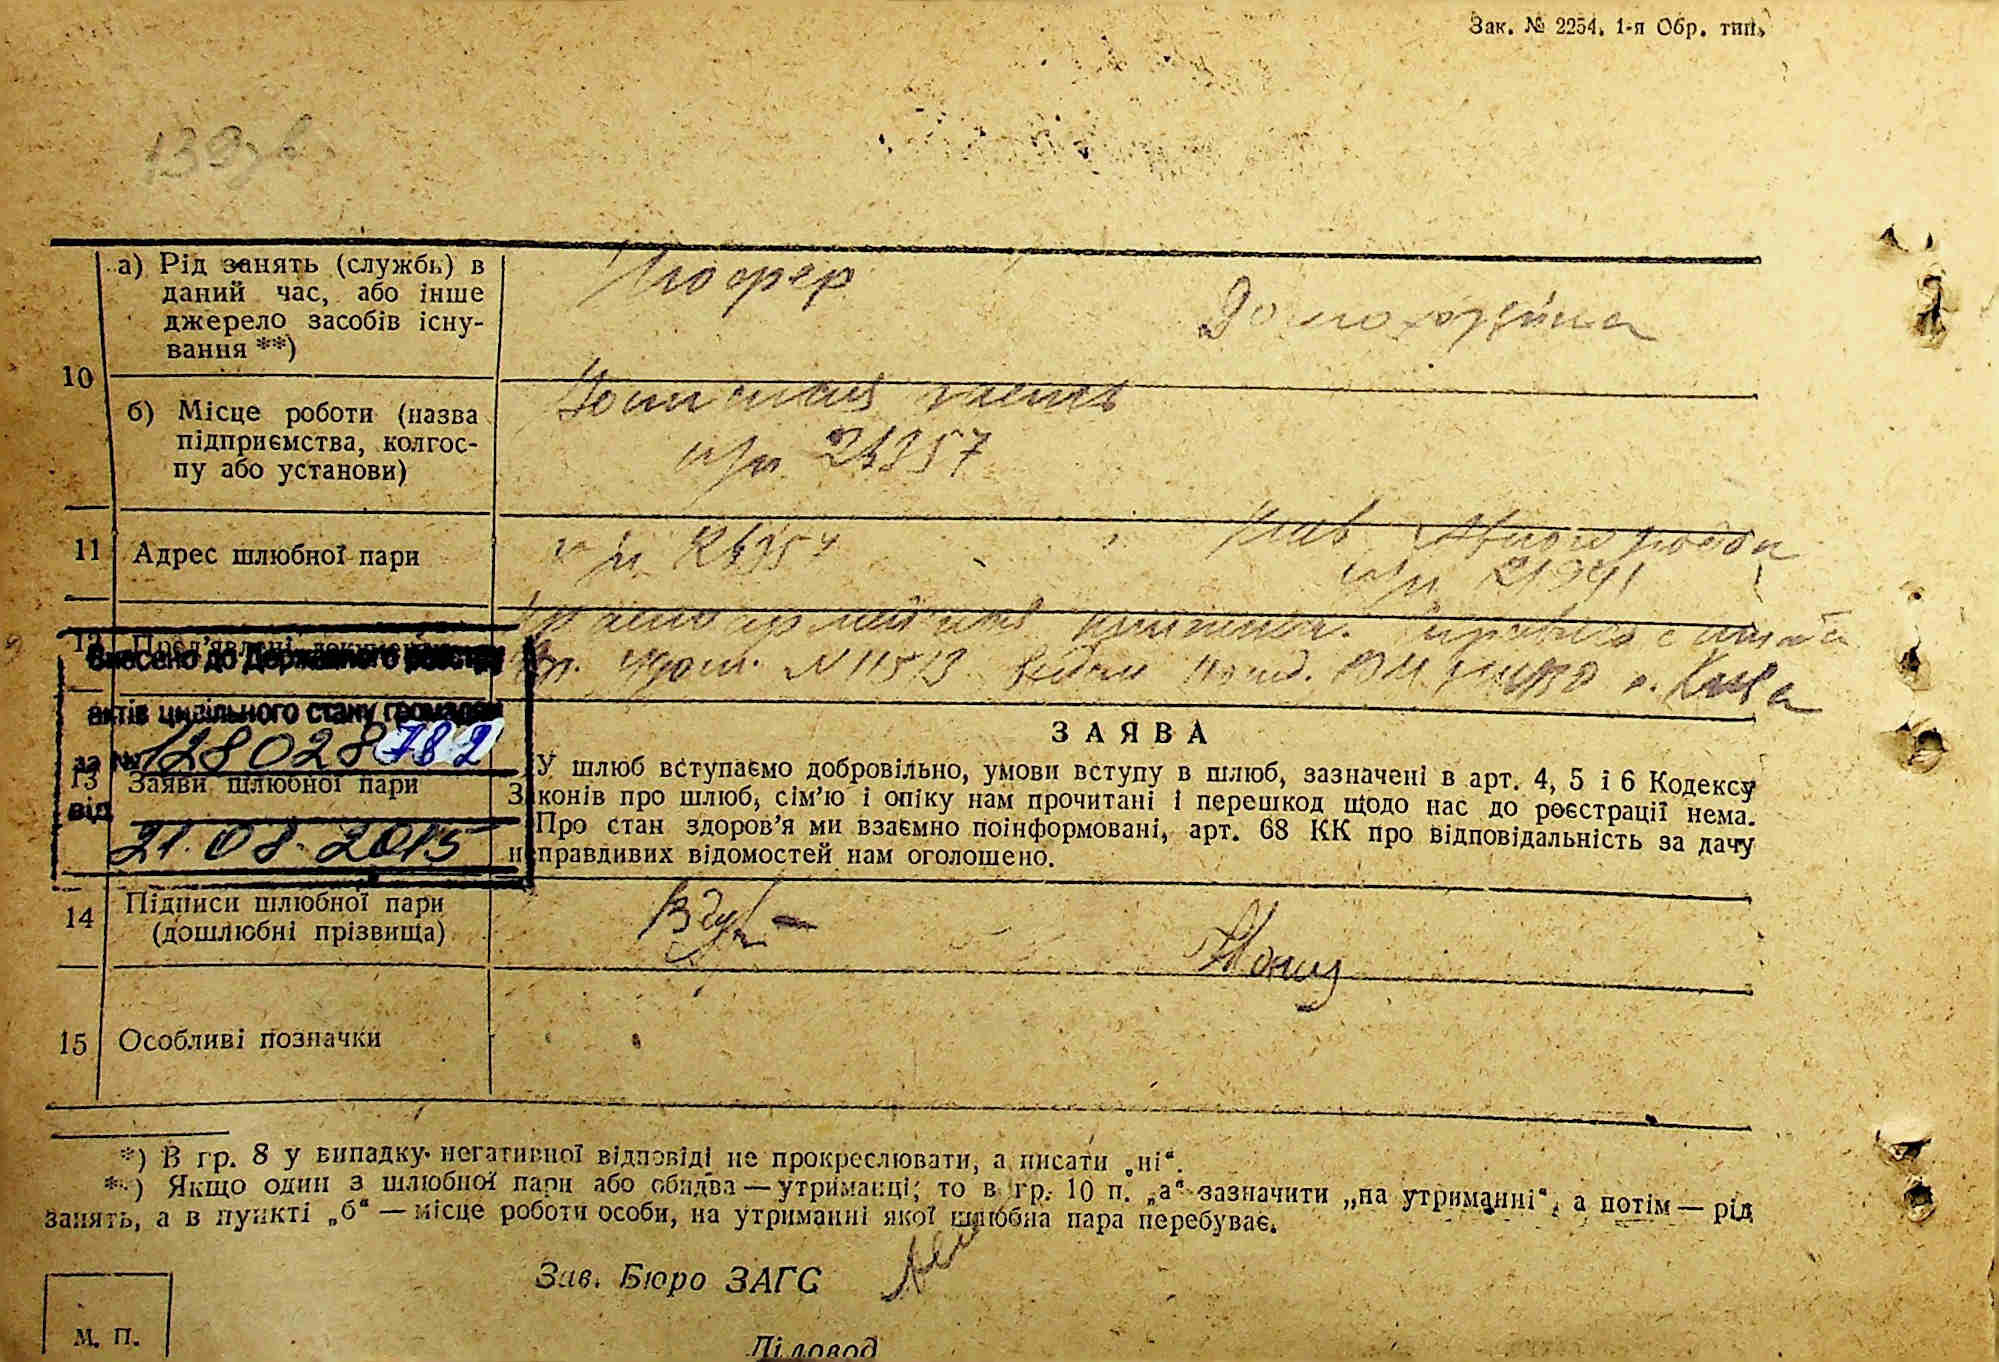 Зак. № 2254. 1-я Обр. тип.
139
10
а) Рід занять (службь) в
даний час, або інше
джерело засобів існу-
вання **)
Шофер
Домохозяйка
б) Місце роботи (назва
підприємства, колгос-
пу або установи)
часть
п/п 24357
11
Адрес шлюбної пари
п/п 24357
Київ
п/п
12 Пред'явлені документи
Красноармейская книжка.
N 11513 г. Києва
Внесено до Державного реєстру
актів цивільного стану громадян
за № 128028782
від
21.08.2015
13
Заяви шлюбної пари
ЗАЯВА
У шлюб вступаємо добровільно, умови вступу в шлюб, зазначені в арт. 4, 5 і 6 Кодексу
Законів про шлюб, сім'ю і опіку нам прочитані і перешкод щодо нас до реєстрації нема.
Про стан здоров'я ми взаємно поінформовані, арт. 68 КК про відповідальність за дачу
неправдивих відомостей нам оголошено.
14
Підписи шлюбної пари
(дошлюбні прізвища)
15
Особливі позначки
*) В гр. 8 у випадку негативної відповіді не прокреслювати, а писати „ні“.
**) Якщо один з шлюбної пари або обидва — утриманці; то в гр. 10 п. „а“ зазначити „на утриманні“, а потім — рід
занять, а в пункті „б“ — місце роботи особи, на утриманні якої шлюбна пара перебуває.
Зав. Бюро ЗАГС
М. П.
Діловод